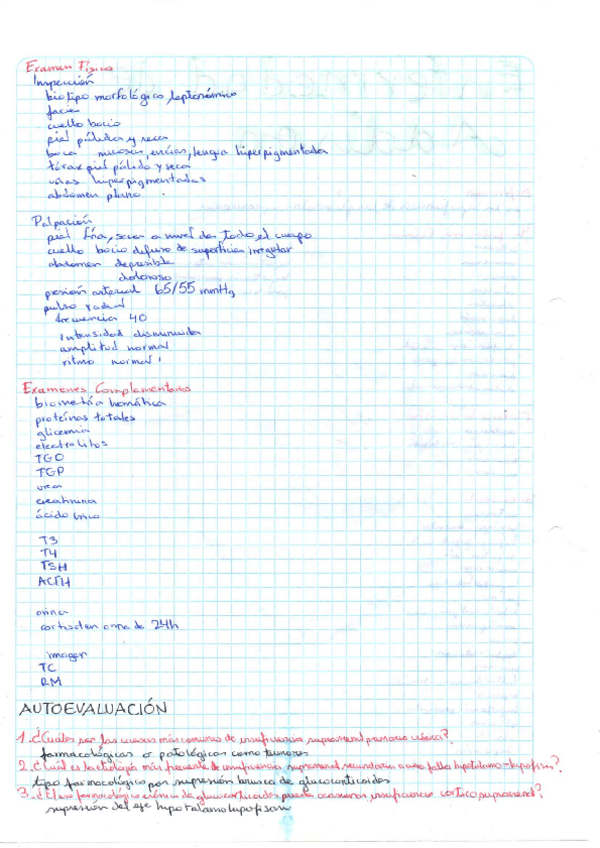 Examen Físico
Inspección
biotipo morfológico leptosómico
facie
cuello bocio
piel pálida y seca
boca mucosas, encías, lengua hiperpigmentada
tórax piel pálida y seca
uñas hiperpigmentadas
abdomen plano
Palpación
piel fría, seca a nivel de todo el cuerpo
cuello bocio difuso de superficie irregular
abdomen depresible
doloroso
presión arterial 65/55 mmHg
pulso radial
frecuencia 40
intensidad disminuida
amplitud normal
ritmo normal
Examenes Complementarios
biometría hemática
proteínas totales
glicemia
electrolitos
TGO
TGP
urea
creatinina
ácido úrico
T3
T4
TSH
ACTH
orina
cortisol en orina de 24h
imagen
TC
RM
AUTOEVALUACIÓN
1. ¿Cuáles son las causas más comunes de insuficiencia suprarrenal primaria
farmacológicas o patológicas como tumores
2. ¿Cuál es la etiología más frecuente de insuficiencia suprarrenal secundaria a una falla hipotálamo-hipófisis?
tipo farmacológico por supresión brusca de glucocorticoides
3. ¿El uso farmacológico crónico de glucocorticoides puede ocasionar insuficiencia corticosuprarrenal?
supresión del eje hipotálamo hipofisario